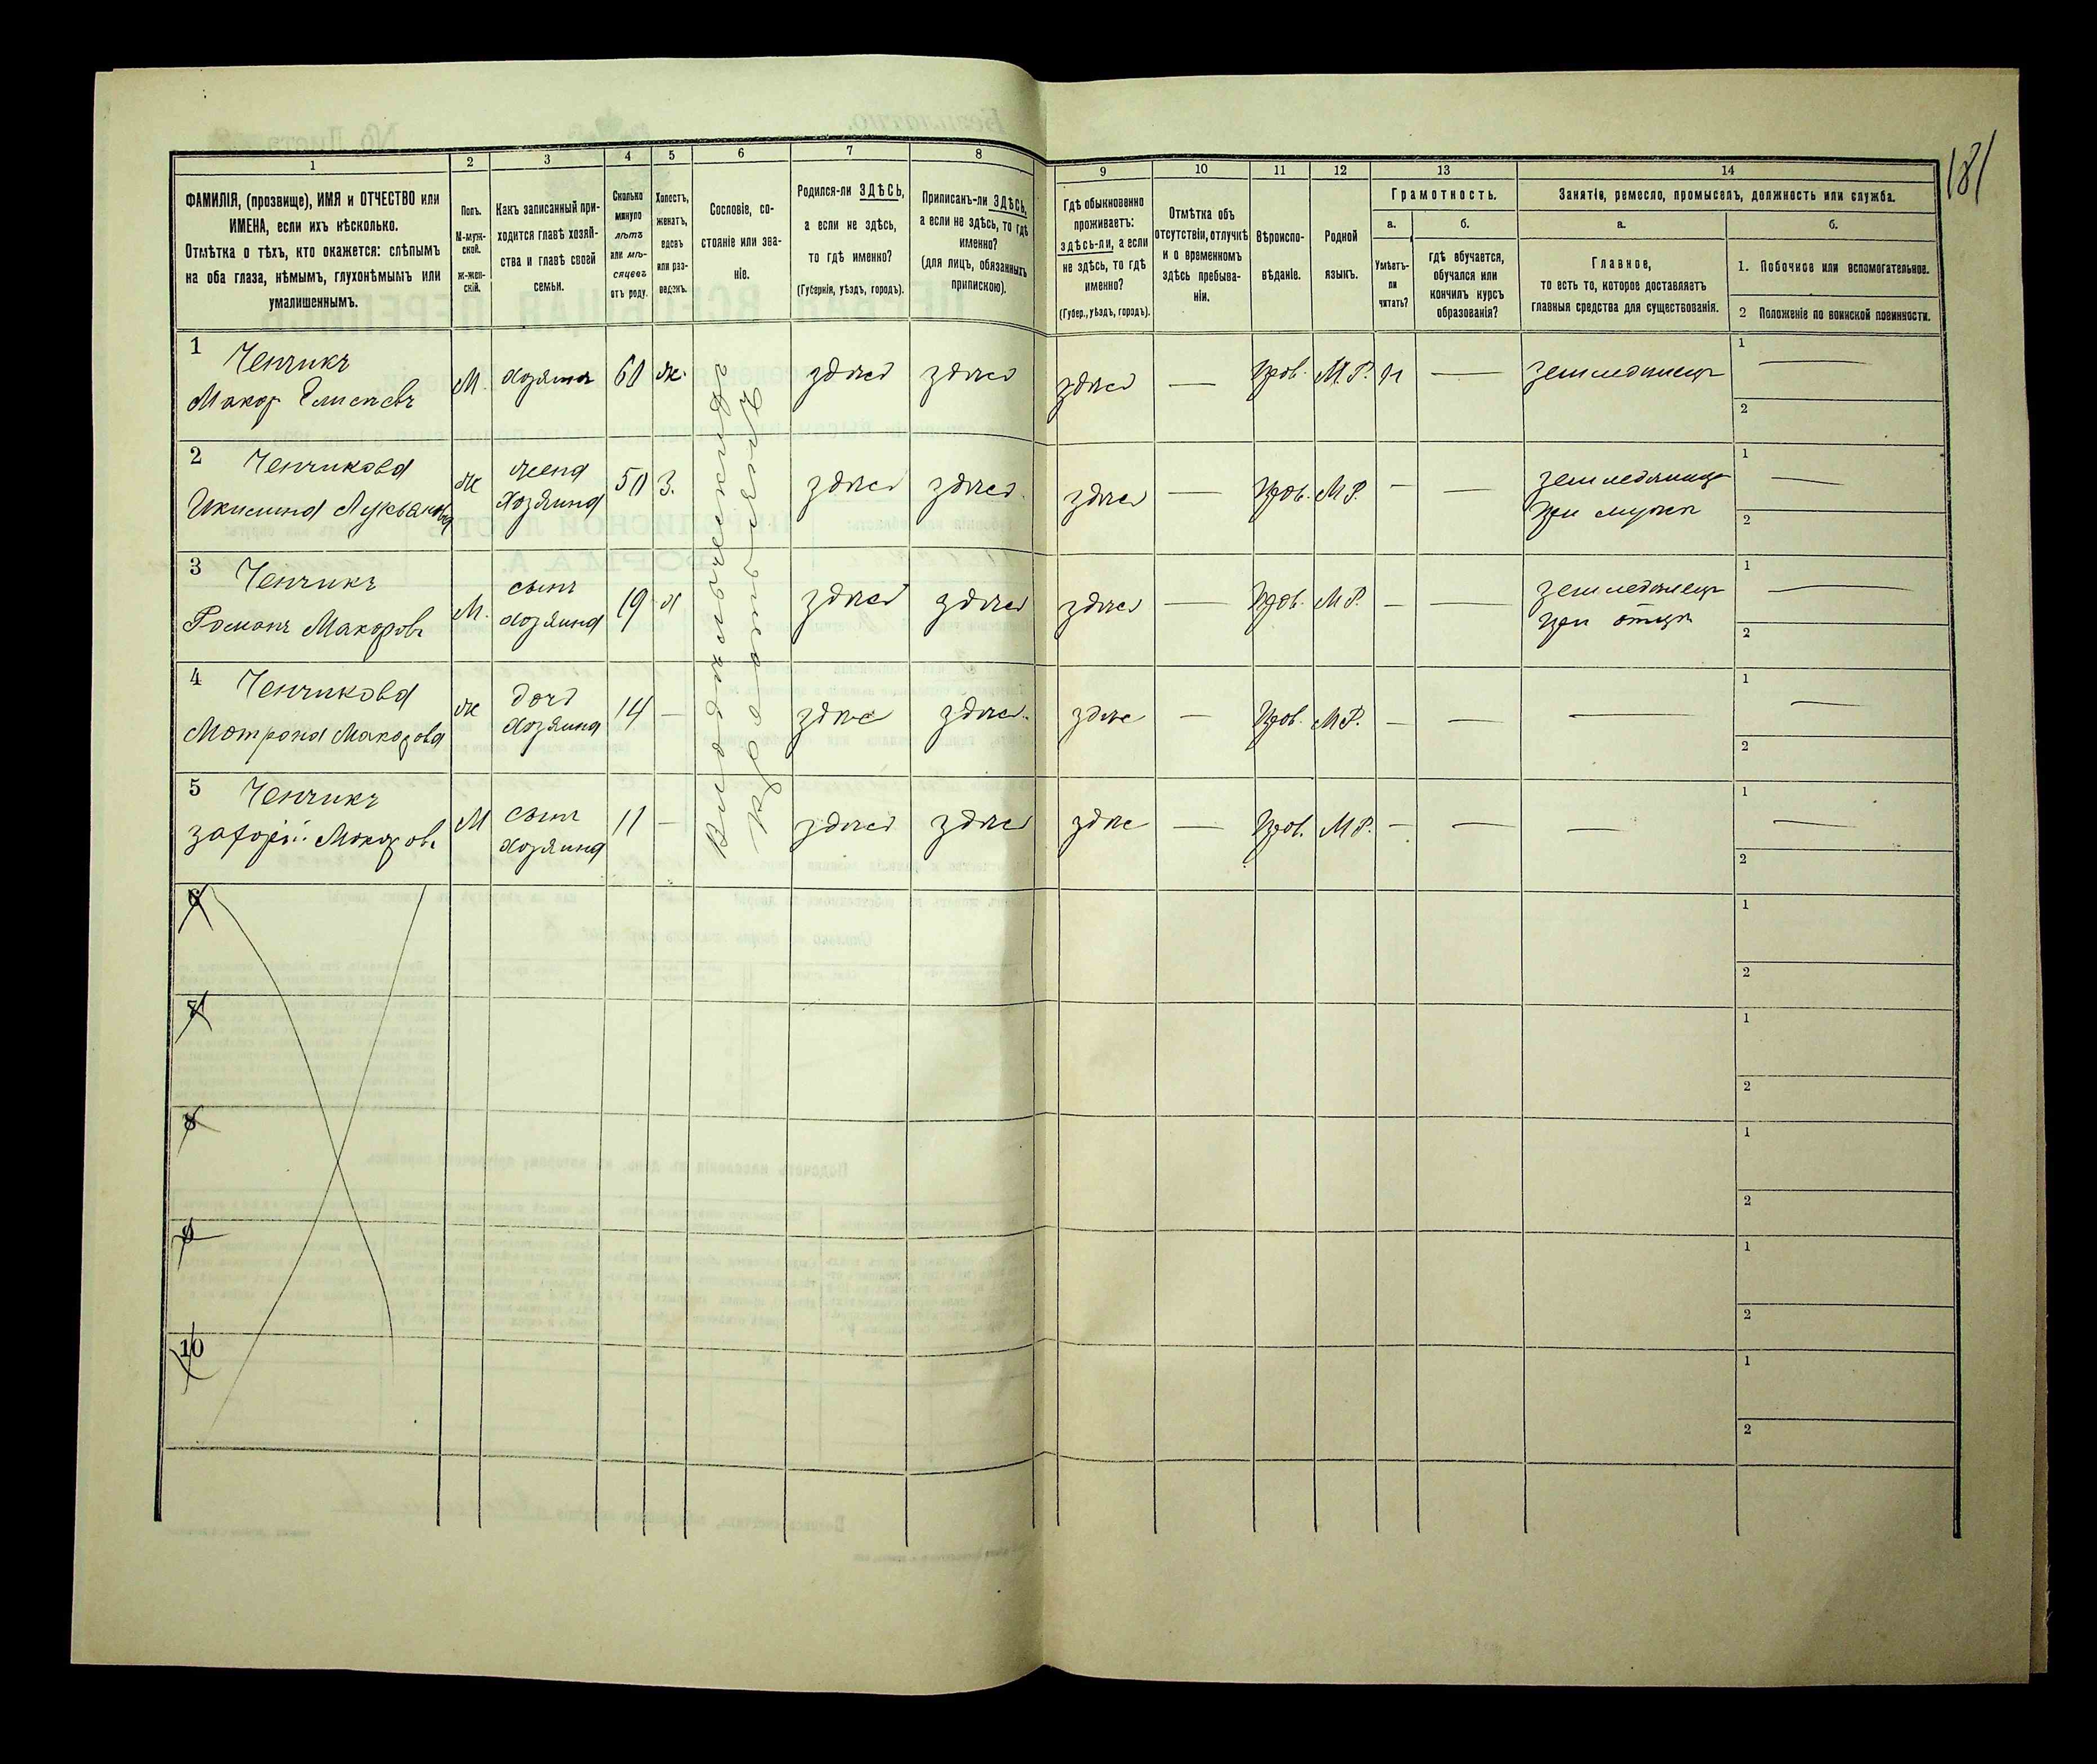 181
1 2 3 4 5 6 7 8 9 10 11 12 13 14
ФАМИЛІЯ, (прозвище), ИМЯ и ОТЧЕСТВО или
ИМЕНА, если ихъ нѣсколько.
Отмѣтка о тѣхъ, кто окажется: слѣпымъ
на оба глаза, нѣмымъ, глухонѣмымъ или
умалишеннымъ.
Полъ.
М-муж-
ской.
ж-жен-
скій.
Какъ записанный при-
ходится главѣ хозяй-
ства и главѣ своей
семьи.
Сколько
минуло
лѣтъ
или мѣ-
сяцевъ
отъ роду.
Холостъ,
женатъ,
вдовъ
или раз-
веденъ.
Сословіе, со-
стояніе или зва-
ніе.
Родился-ли ЗДѢСЬ,
а если не здѣсь,
то гдѣ именно?
(Губернія, уѣздъ, городъ).
Приписанъ-ли ЗДѢСЬ,
а если не здѣсь, то гдѣ
именно?
(для лицъ, обязанныхъ
припискою).
Гдѣ обыкновенно
проживаетъ:
здѣсь-ли, а если
не здѣсь, то гдѣ
именно?
(Губер., уѣздъ, городъ).
Отмѣтка объ
отсутствіи, отлучкѣ
и о временномъ
здѣсь пребыва-
ніи.
Вѣроиспо-
вѣданіе.
Родной
языкъ.
Грамотность.
а.
Умѣетъ-
ли
читать?
б.
гдѣ обучается,
обучался или
кончилъ курсъ
образованія?
Занятіе, ремесло, промыселъ, должность или служба.
а.
Главное,
то есть то, которое доставляетъ
главныя средства для существованія.
б.
1. Побочное или вспомогательное.
2 Положеніе по воинской повинности.
1 Ченчикъ
Макар Елисеевъ
М. хозяинъ 60 ж. здѣсь здѣсь здѣсь — Прав. М.Р. н — земледѣлецъ 1 —
2
2 Ченчикова
Лукьянова
ж жена
хозяина 50 З. здѣсь здѣсь здѣсь — Прав. М.Р. — — земледѣлица
при мужѣ
1 —
2
3 Ченчикъ
Романъ Макаровъ
М. сынъ
хозяина 19 х здѣсь здѣсь здѣсь — Прав. М.Р. — — земледѣлецъ
при отцѣ
1 —
2
4 Ченчикова
Мотрона Макарова
ж дочь
хозяина 14 — здѣсь здѣсь здѣсь — Прав. М.Р. — — — 1 —
2
5 Ченчикъ
Захарій Макаровъ
М сынъ
хозяина 11 — здѣсь здѣсь здѣсь — Прав. М.Р. — — — 1 —
2
6 1
2
7 1
2
8 1
2
9 1
2
10 1
2